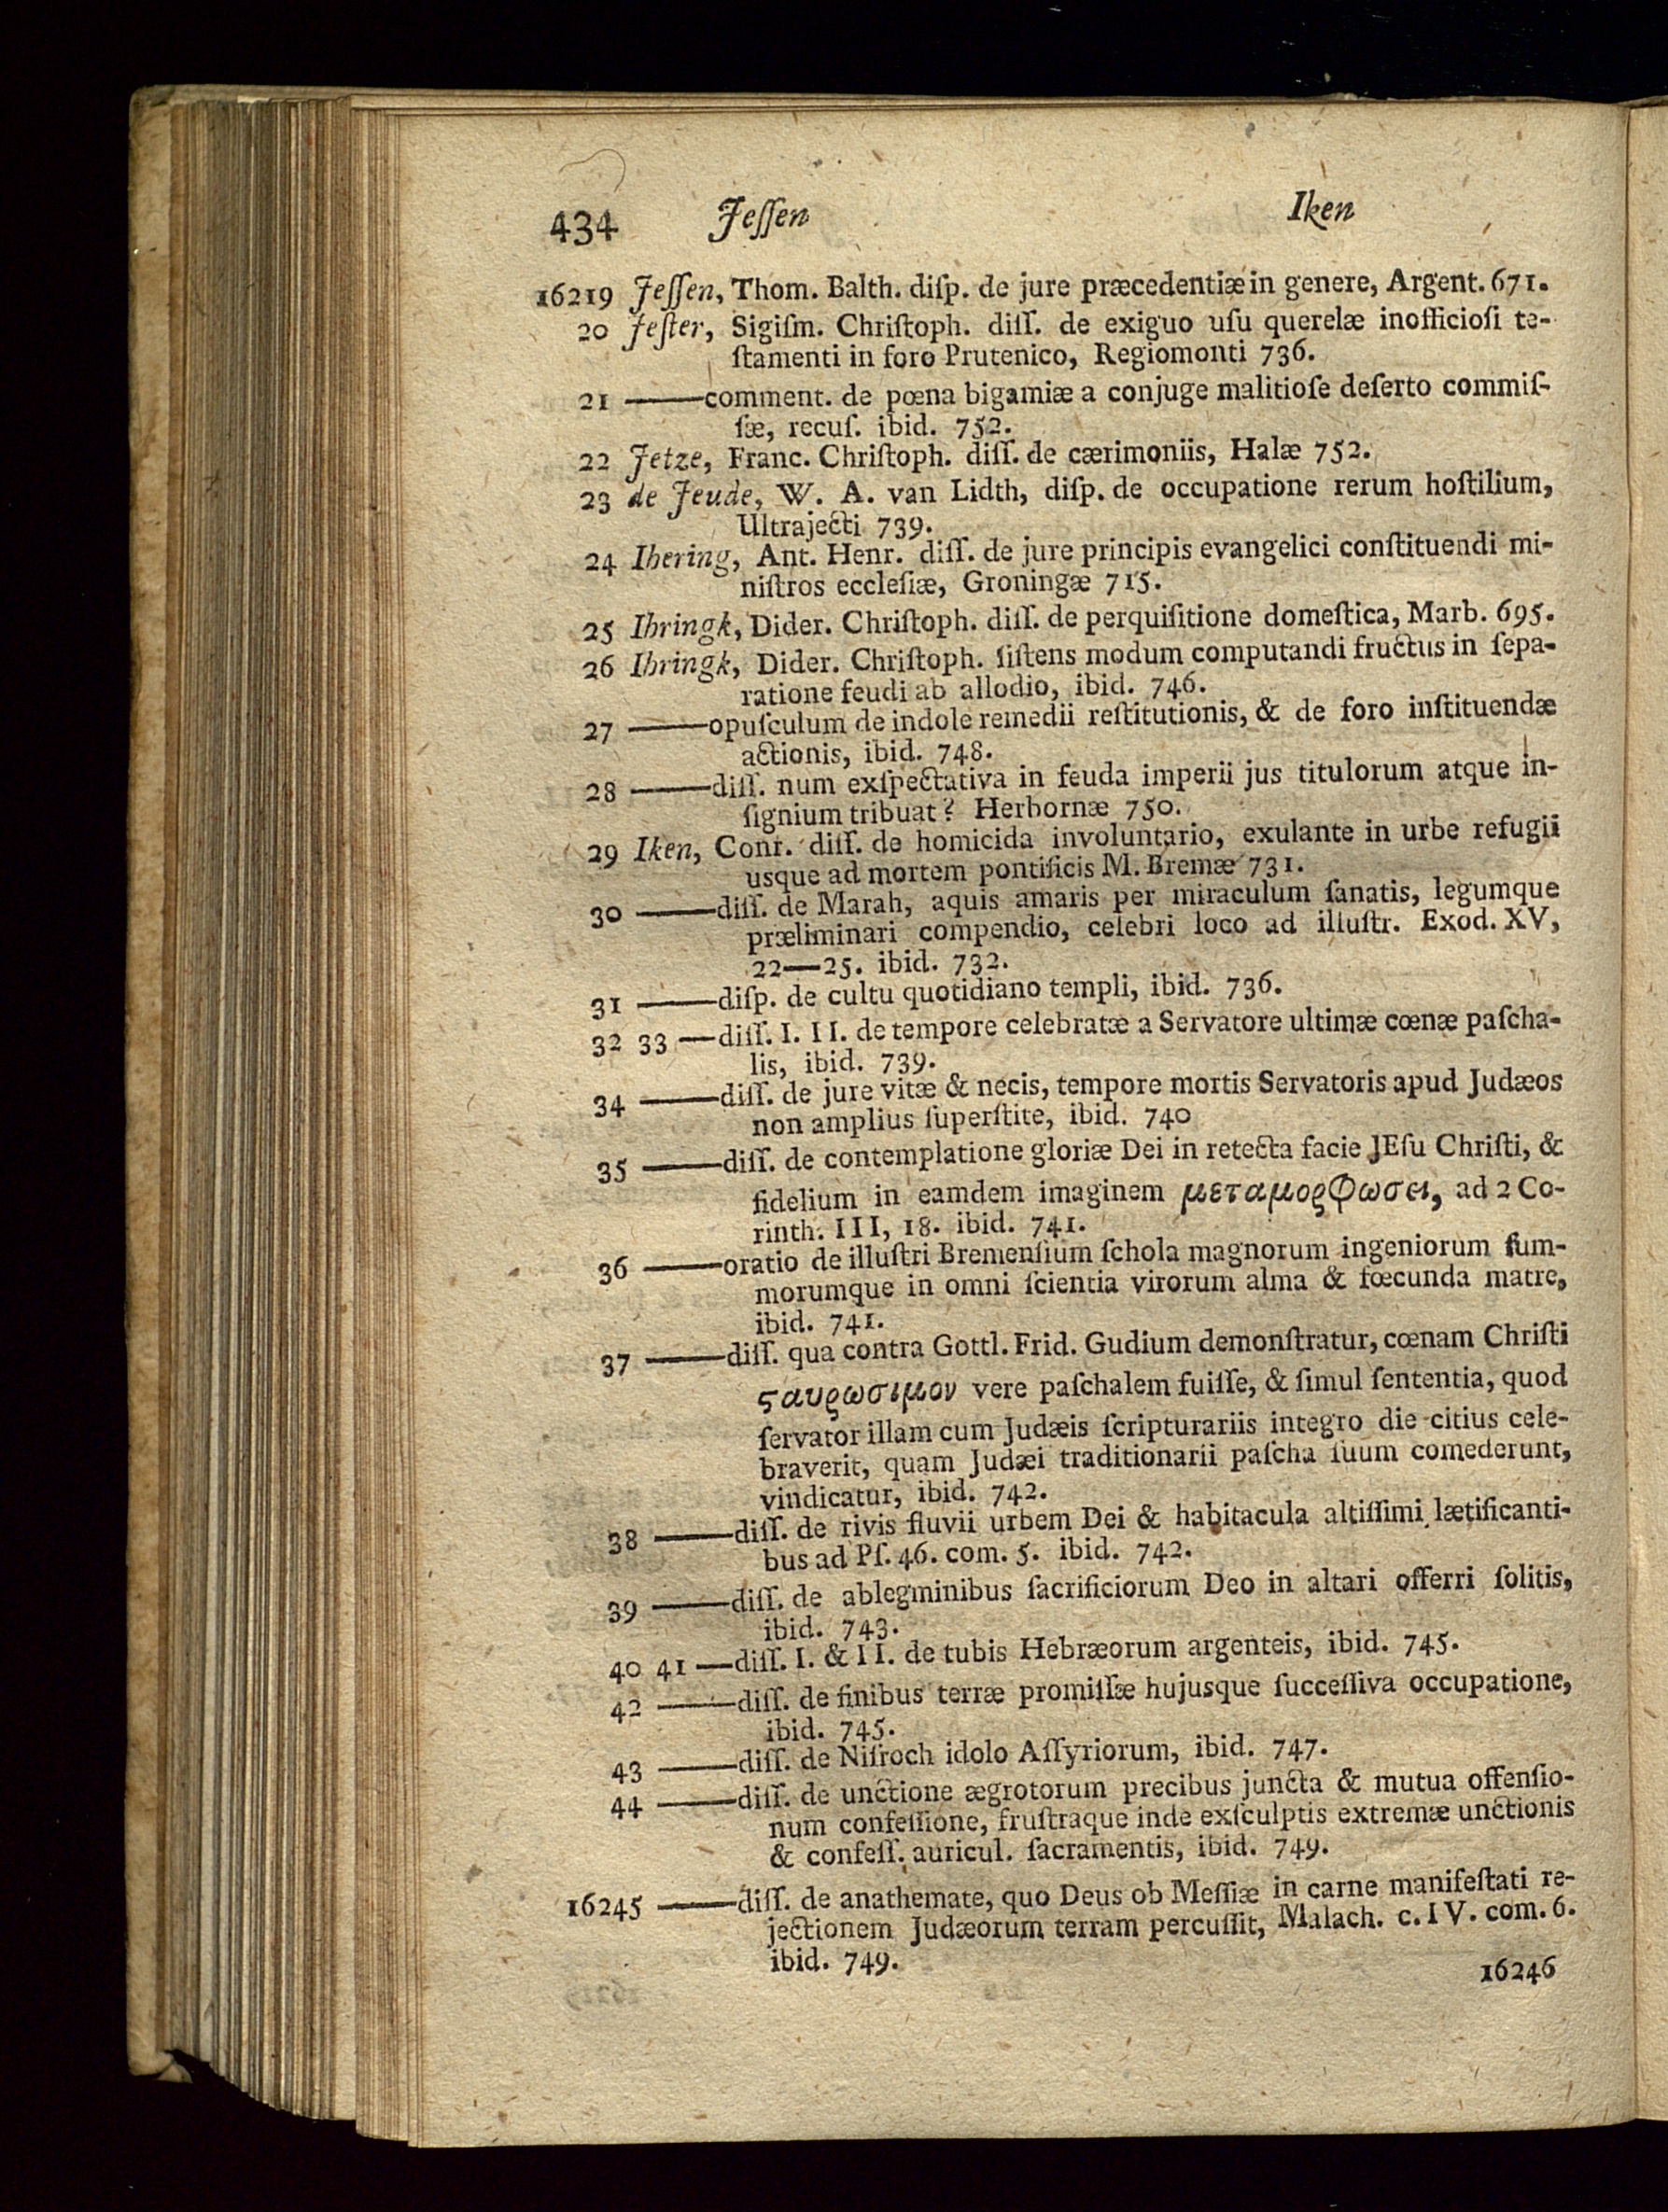 434 Jeſſen Iken
16219 Jeſſen, Thom. Balth. diſp. de jure præcedentiæ in genere, Argent. 671.
20 Jeſter, Sigiſm. Chriſtoph. diſſ. de exiguo uſu querelæ inofficioſi te-
ſtamenti in foro Prutenico, Regiomonti 736.
21 ——comment. de pœna bigamiæ a conjuge malitioſe deſerto commiſ-
ſæ, recuſ. ibid. 752.
22 Jetze, Franc. Chriſtoph. diſſ. de cærimoniis, Halæ 752.
23 de Jeude, W. A. van Lidth, diſp. de occupatione rerum hoſtilium,
Ultrajecti 739.
24 Ihering, Ant. Henr. diſſ. de jure principis evangelici conſtituendi mi-
niſtros eccleſiæ, Groningæ 715.
25 Ihringk, Dider. Chriſtoph. diſſ. de perquiſitione domeſtica, Marb. 695.
26 Ihringk, Dider. Chriſtoph. ſiſtens modum computandi fructus in ſepa-
ratione feudi ab allodio, ibid. 746.
27 ——opuſculum de indole remedii reſtitutionis, & de foro inſtituendæ
actionis, ibid. 748.
28 ——diſſ. num exſpectativa in feuda imperii jus titulorum atque in-
ſignium tribuat? Herbornæ 750.
29 Iken, Conr. diſſ. de homicida involuntario, exulante in urbe refugii
usque ad mortem pontificis M. Bremæ 731.
30 ——diſſ. de Marah, aquis amaris per miraculum ſanatis, legumque
præliminari compendio, celebri loco ad illuſtr. Exod. XV,
22—25. ibid. 732.
31 ——diſp. de cultu quotidiano templi, ibid. 736.
32 33 —diſſ. I. II. de tempore celebratæ a Servatore ultimæ cœnæ paſcha-
lis, ibid. 739.
34 ——diſſ. de jure vitæ & necis, tempore mortis Servatoris apud Judæos
non amplius ſuperſtite, ibid. 740
35 ——diſſ. de contemplatione gloriæ Dei in retecta facie JEſu Chriſti, &
fidelium in eamdem imaginem μεταμορφωσει, ad 2 Co-
rinth. III, 18. ibid. 741.
36 ——oratio de illuſtri Bremenſium ſchola magnorum ingeniorum ſum-
morumque in omni ſcientia virorum alma & fœcunda matre,
ibid. 741.
37 ——diſſ. qua contra Gottl. Frid. Gudium demonſtratur, cœnam Chriſti
ϛαυρωσιμον vere paſchalem fuiſſe, & ſimul ſententia, quod
ſervator illam cum Judæis ſcripturariis integro die citius cele-
braverit, quam Judæi traditionarii paſcha ſuum comederunt,
vindicatur, ibid. 742.
38 ——diſſ. de rivis fluvii urbem Dei & habitacula altiſſimi lætificanti-
bus ad Pſ. 46. com. 5. ibid. 742.
39 ——diſſ. de ablegminibus ſacrificiorum Deo in altari offerri ſolitis,
ibid. 743.
40 41 —diſſ. I. & II. de tubis Hebræorum argenteis, ibid. 745.
42 ——diſſ. de finibus terræ promiſſæ hujusque ſucceſſiva occupatione,
ibid. 745.
43 ——diſſ. de Niſroch idolo Aſſyriorum, ibid. 747.
44 ——diſſ. de unctione ægrotorum precibus juncta & mutua offenſio-
num confeſſione, fruſtraque inde exſculptis extremæ unctionis
& confeſſ. auricul. ſacramentis, ibid. 749.
16245 ——diſſ. de anathemate, quo Deus ob Meſſiæ in carne manifeſtati re-
jectionem Judæorum terram percuſſit, Malach. c. IV. com. 6.
ibid. 749.
16246